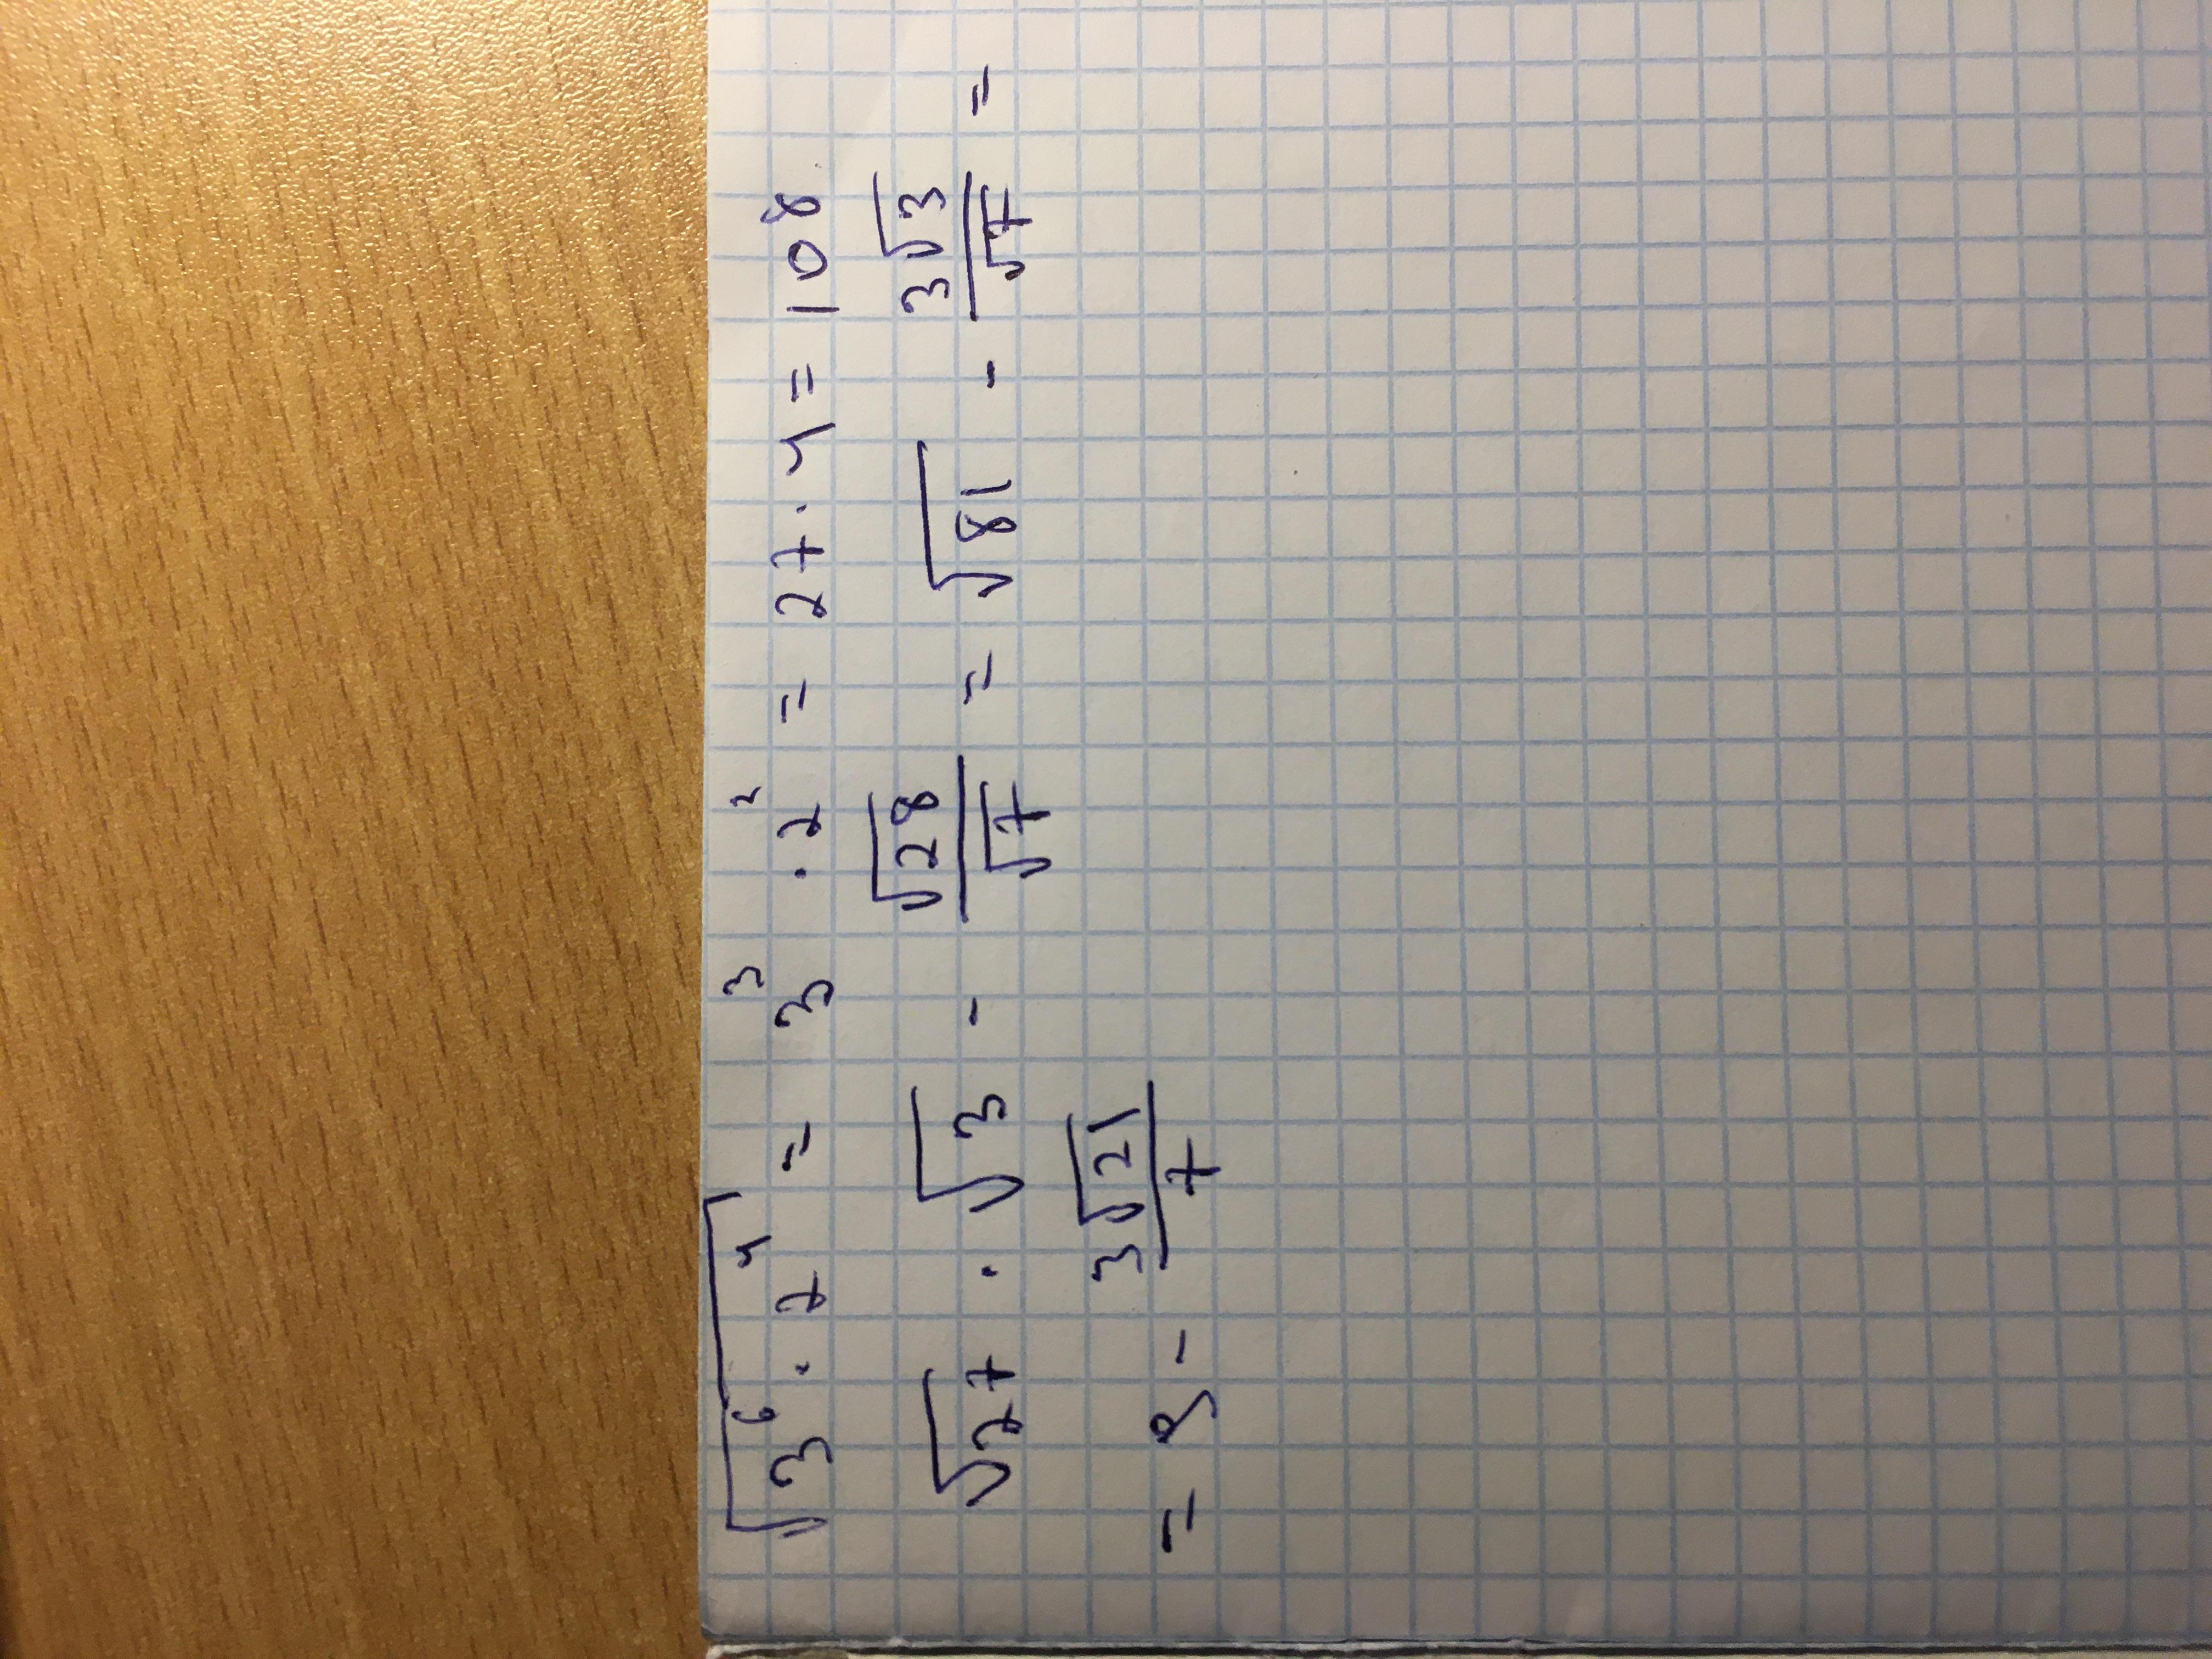 √(3⁶ · 2⁴) = 3³ · 2² = 27 · 4 = 108
√27 · √3 - √28/√7 = √81 - 3√3/√7 =
= 9 - 3√21/7